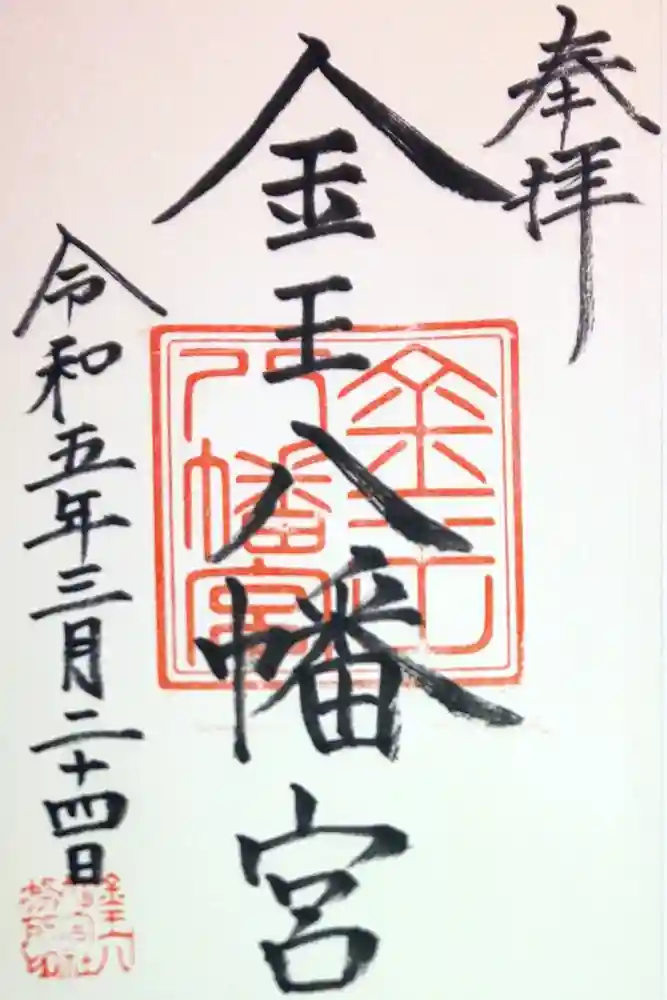 奉拝
金王八幡宮
令和五年三月二十四日
金王
八幡宮